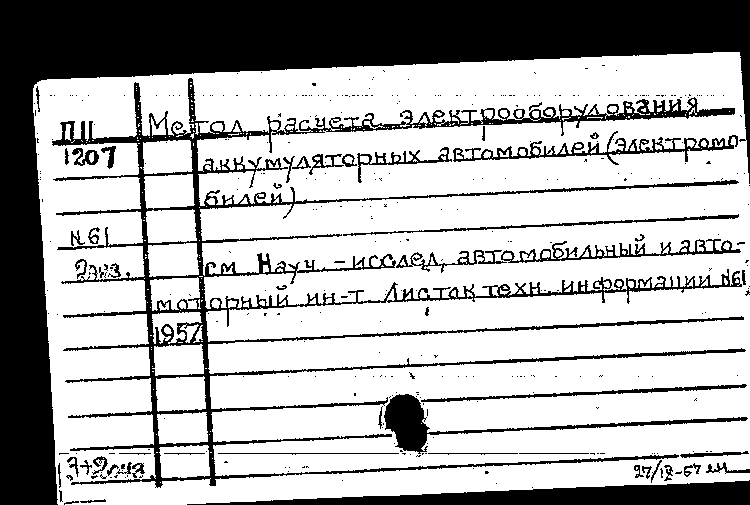 ПЦ Метод расчета электрооборудования
1207 аккумуляторных автомобилей (электромо-
билей)
N 61
2 экз. см Науч. - исслед, автомобильный и авто-
моторный ин-т Листок техн. информации №61
1957
27/IX-57